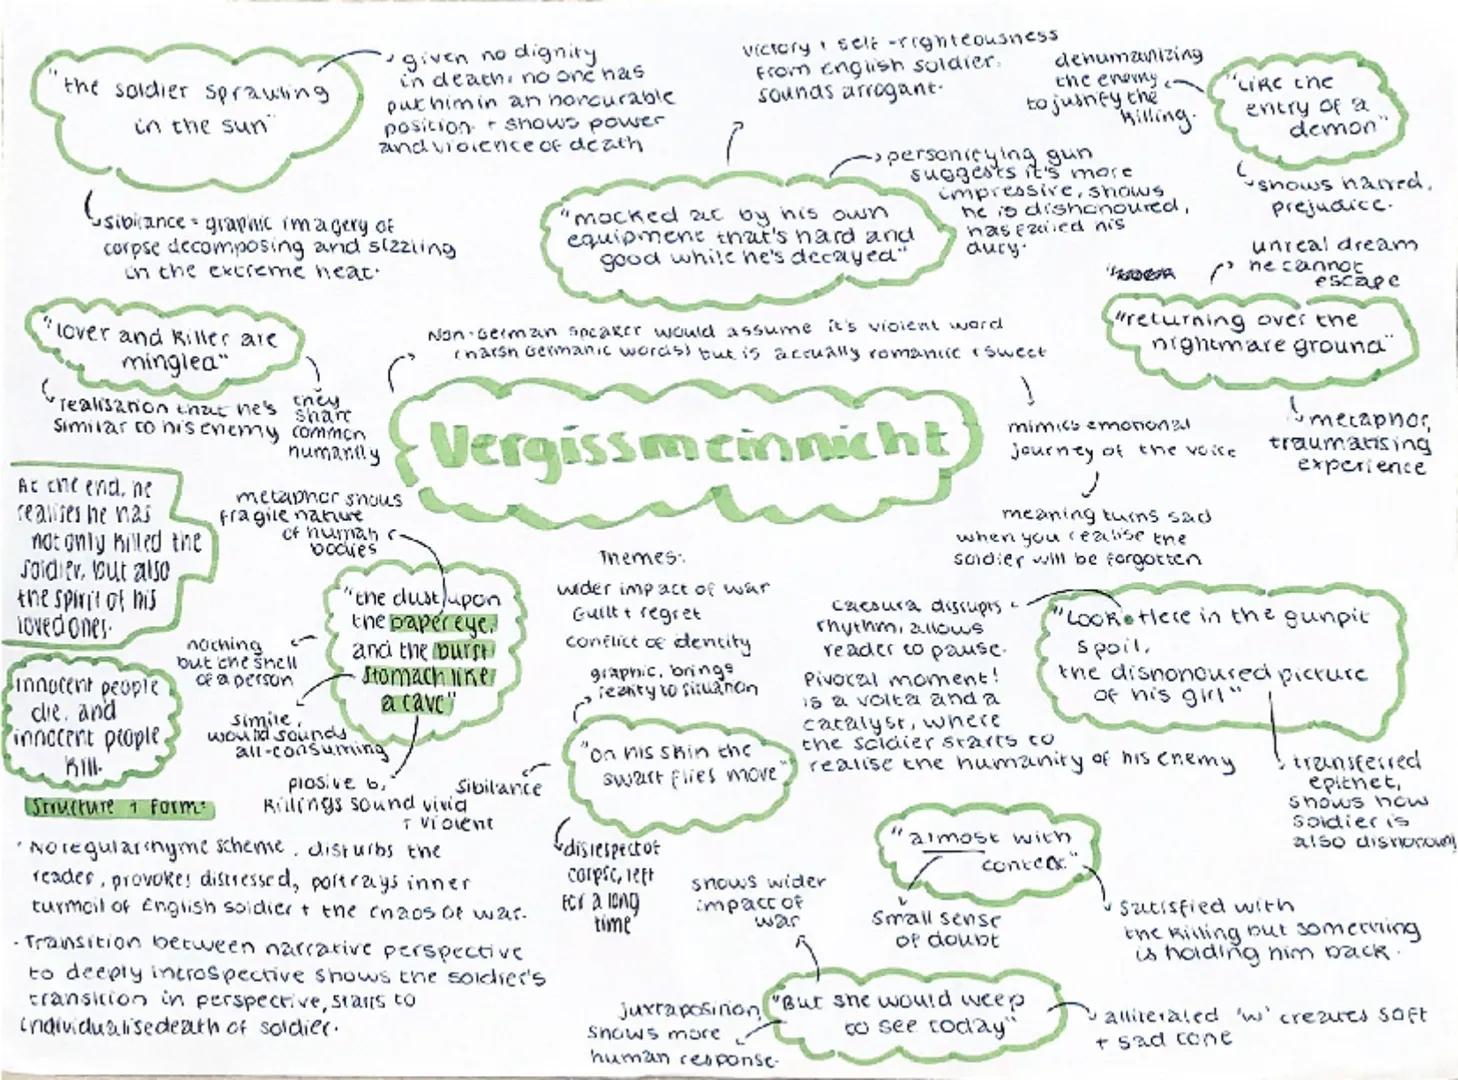 "the soldier sprawling
in the sun"
given no dignity
in death, no one has
put him in an honourable
position + shows power
and violence of death
sibilance = graphic imagery of
corpse decomposing and sizzling
in the extreme heat.
victory + self-righteousness
from English soldier.
sounds arrogant.
"mocked at by his own
equipment that's hard and
good while he's decayed"
personifying gun
suggests it's more
impressive, shows
he is dishonoured,
has failed his
duty.
dehumanizing
the enemy
to justify the
killing.
"Like the
entry of a
demon"
shows hatred,
prejudice.
unreal dream
he cannot
escape
"returning over the
nightmare ground"
metaphor,
traumatising
experience
"lover and killer are
mingled"
realisation that he's
similar to his enemy
they
share
common
humanity
Non-German speaker would assume it's violent word
(harsh Germanic words) but is actually romantic + sweet
Vergissmeinnicht
mimics emotional
journey of the voice
meaning turns sad
when you realise the
soldier will be forgotten
At the end, he
realises he has
not only killed the
soldier, but also
the spirit of his
loved ones.
innocent people
die, and
innocent people
kill.
metaphor shows
fragile nature
of human
bodies
"the dust upon
the paper eye,
and the burst
stomach like
a cave"
nothing
but the shell
of a person
simile,
wound sounds
all-consuming
plosive b,
killings sound vivid
+ violent
Themes:
wider impact of war
Guilt + regret
conflict of identity
graphic, brings
reality to situation
"on his skin the
swart flies move"
Sibilance
disrespect of
corpse, left
for a long
time
Caesura disrupts
rhythm, allows
reader to pause.
Pivotal moment!
is a volta and a
catalyst, where
the soldier starts to
realise the humanity of his enemy
"Look. Here in the gunpit
spoil,
the dishonoured picture
of his girl"
transferred
epithet,
shows how
soldier is
also dishonoured
Structure + form:
· No regular rhyme scheme, disturbs the
reader, provokes distressed, portrays inner
turmoil of English soldier + the chaos of war.
· Transition between narrative perspective
to deeply introspective shows the soldier's
transition in perspective, starts to
individualise death of soldier.
"almost with
content"
small sense
of doubt
satisfied with
the killing but something
is holding him back.
shows wider
impact of
war
"But she would weep
to see today"
juxtaposition,
shows more
human response.
alliterated 'w' creates soft
+ sad tone